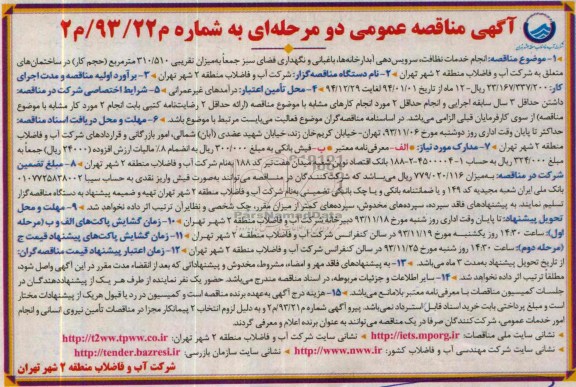 آگهی مناقصه عمومی دو مرحله‌ای به شماره م۹۳/۲۲/م۲
۱- موضوع مناقصه: انجام خدمات نظافت، سرویس‌دهی آبدارخانه‌ها، باغبانی و نگهداری فضای سبز جمعاً به‌میزان تقریبی ۳۱۰/۵۱۰ مترمربع (حجم کار) در ساختمان‌های
متعلق به شرکت آب و فاضلاب منطقه ۲ شهر تهران ۲- نام دستگاه مناقصه‌گزار: شرکت آب و فاضلاب منطقه ۲ شهر تهران ۳- برآورد اولیه مناقصه و مدت اجرای
کار: ۲۳/۱۶۷/۳۳۷/۲۰۰ ریال- ۱۲ ماه از تاریخ ۹۴/۰۱/۰۱ لغایت ۹۴/۱۲/۲۹ ۴- محل تأمین اعتبار: درآمدهای غیرعمرانی ۵- شرایط اختصاصی شرکت در مناقصه:
داشتن حداقل ۳ سال سابقه اجرایی و انجام حداقل ۲ مورد انجام کارهای مشابه با موضوع مناقصه (ارائه حداقل ۲ رضایت‌نامه کتبی بابت انجام ۲ مورد کار مشابه با موضوع
مناقصه) از سوی کارفرمایان قبلی الزامی می‌باشد. در اساسنامه مناقصه‌گران موضوع فعالیت می‌بایست مرتبط با موضوع باشد. ۶- مهلت و محل دریافت اسناد مناقصه:
حداکثر تا پایان وقت اداری روز دوشنبه مورخ ۹۳/۱۱/۰۶، تهران- خیابان کریم‌خان زند، خیابان شهید عضدی (آبان) شمالی، امور بازرگانی و قراردادهای شرکت آب و فاضلاب
منطقه ۲ شهر تهران ۷- مدارک مورد نیاز: الف- معرفی‌نامه معتبر ب- فیش بانکی به مبلغ ۳۰۰/۰۰۰ ریال به انضمام ۸٪ مالیات ارزش افزوده (۲۴۰۰۰ ریال) جمعاً به
مبلغ ۳۲۴/۰۰۰ ریال به حساب
شرکت در مناقصه: به‌میزان ۷۷۹/۰۲۰/۱۱۶ ریال می‌باشد که شرکت‌کنندگان در مناقصه می‌توانند به‌صورت فیش واریز نقدی به حساب سیبا
بانک ملی ایران شعبه مجیدیه کد ۱۴۹ و یا ضمانتنامه بانکی و یا چک بانکی تضمینی به‌نام شرکت آب و فاضلاب منطقه ۲ شهر تهران تهیه و ضمیمه پیشنهاد به دستگاه مناقصه‌گزار
تسلیم نمایند. به پیشنهادهای فاقد سپرده، سپرده‌های مخدوش، سپرده‌های کمتر از میزان مقرر، چک شخصی و نظایر آن ترتیب اثر داده نخواهد شد. ۹- مهلت و محل
تحویل پیشنهاد: تا پایان وقت اداری روز شنبه مورخ ۹۳/۱۱/۱۸ شهر تهران ۱۰- زمان گشایش پاکت‌های الف و ب (مرحله
اول): ساعت ۱۴:۳۰ روز یکشنبه مورخ ۹۳/۱۱/۱۹ در سالن کنفرانس شرکت آب و فاضلاب منطقه ۲ شهر تهران ۱۱- زمان گشایش پاکت‌های پیشنهاد قیمت ج
(مرحله دوم): ساعت ۱۴:۳۰ روز شنبه مورخ ۹۳/۱۱/۲۵ در سالن کنفرانس شرکت آب و فاضلاب منطقه ۲ شهر تهران ۱۲- زمان اعتبار پیشنهاد قیمت مناقصه‌گران:
از تاریخ تحویل پیشنهاد به‌مدت ۳ ماه می‌باشد. ۱۳- به پیشنهادهای فاقد مهر و امضاء، مشروط، مخدوش و پیشنهاداتی که بعد از انقضاء مدت مقرر در این آگهی واصل شود،
مطلقاً ترتیب اثر داده نخواهد شد. ۱۴- سایر اطلاعات و جزئیات مربوطه، در اسناد مناقصه مندرج می‌باشد. حضور یک نفر نماینده از طرف هر یک از پیشنهاددهندگان در
جلسات کمیسیون مناقصات با معرفی‌نامه معتبر بلامانع می‌باشد ۱۵- هزینه درج آگهی به‌عهده برنده مناقصه است و کمیسیون در رد یا قبول هر یک از پیشنهادات مختار
است و مبلغ پرداختی بابت خرید اسناد قابل استرداد نمی‌باشد. پیرو آگهی شماره م۹۳/۲۱/م۲ و به دلیل لزوم انتخاب ۲ پیمانکار مجزا در مناقصات تأمین نیروی انسانی و انجام
امور خدمات عمومی، شرکت‌کنندگان صرفاً در یک مناقصه می‌توانند به عنوان برنده اعلام و معرفی گردند.
نشانی سایت ملی مناقصات: http://iets.mporg.ir نشانی سایت شرکت آب و فاضلاب منطقه ۲ شهر تهران: http://t2ww.tpww.co.ir
نشانی سایت شرکت مهندسی آب و فاضلاب کشور: http://www.nww.ir نشانی سایت سازمان بازرسی: http://tender.bazresi.ir
شرکت آب و فاضلاب منطقه ۲ شهر تهران